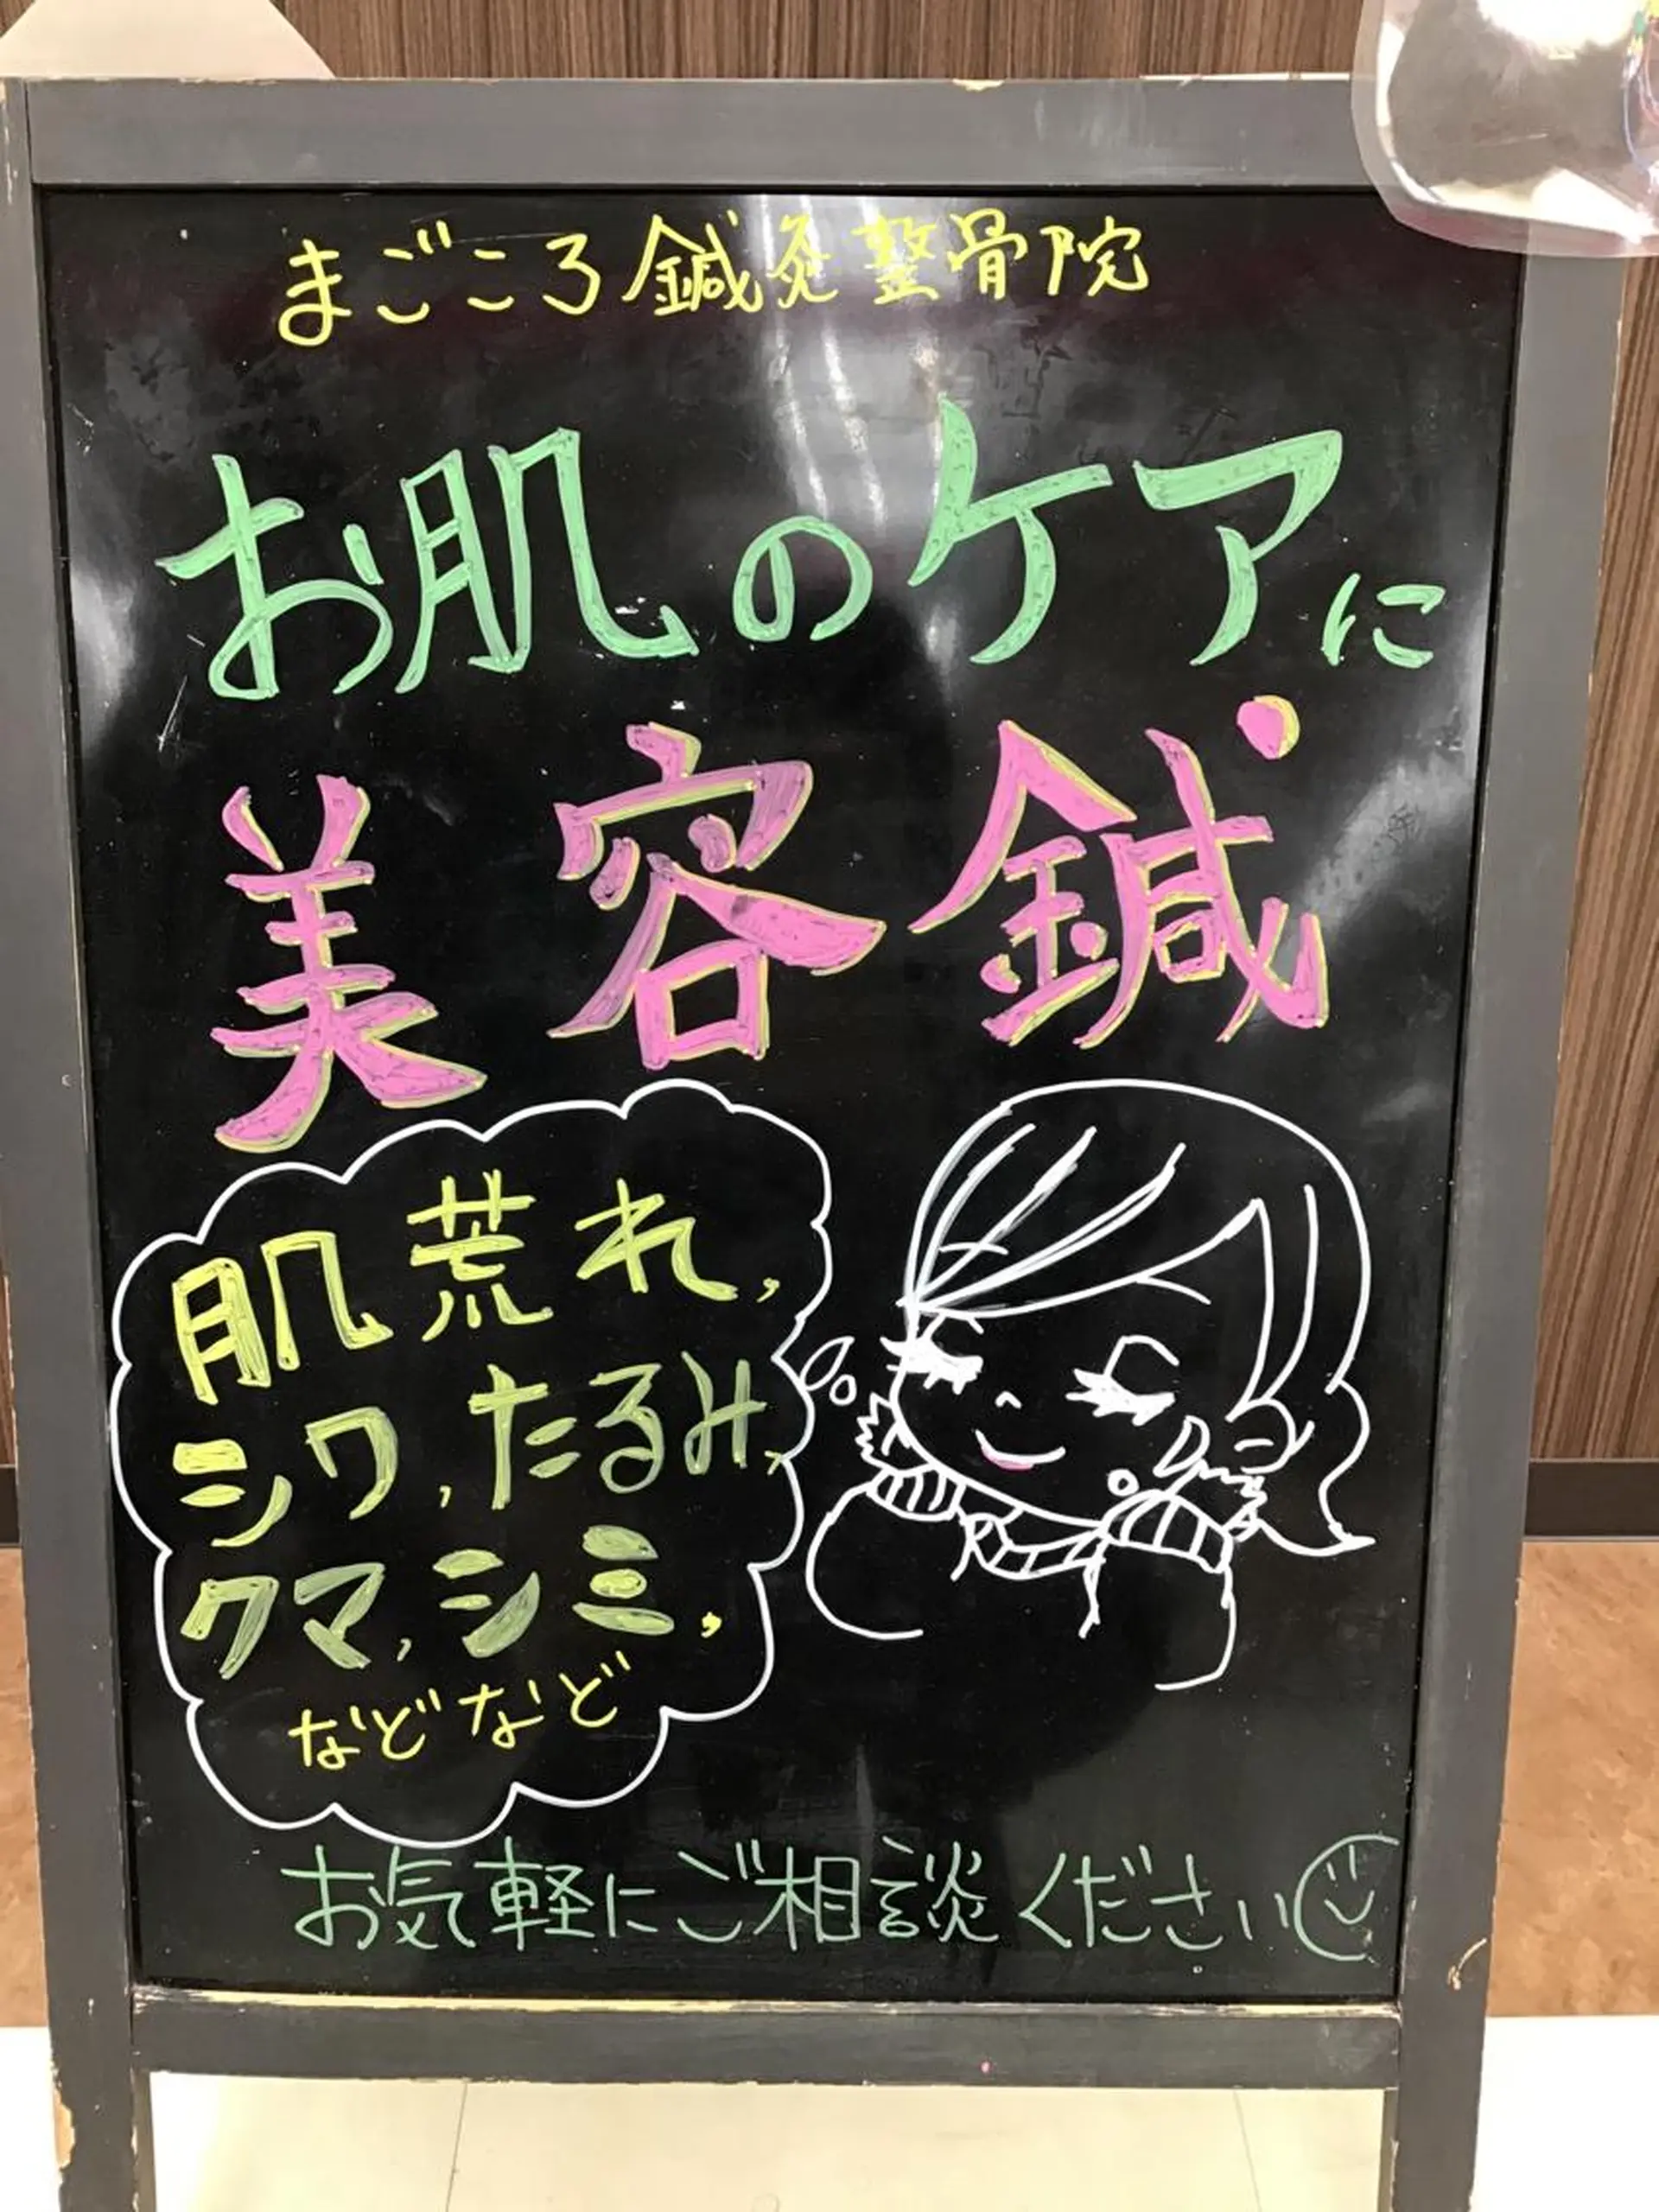 まごころ鍼灸整骨院
お肌のケアに
美容鍼
肌荒れ,
シワ,たるみ,
クマ,シミ,
などなど
お気軽にご相談ください